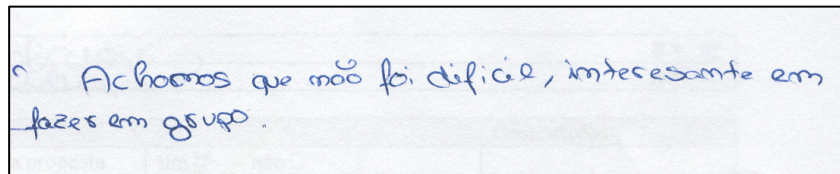 Achamos que não foi dificil, interesante em
fazer em grupo.